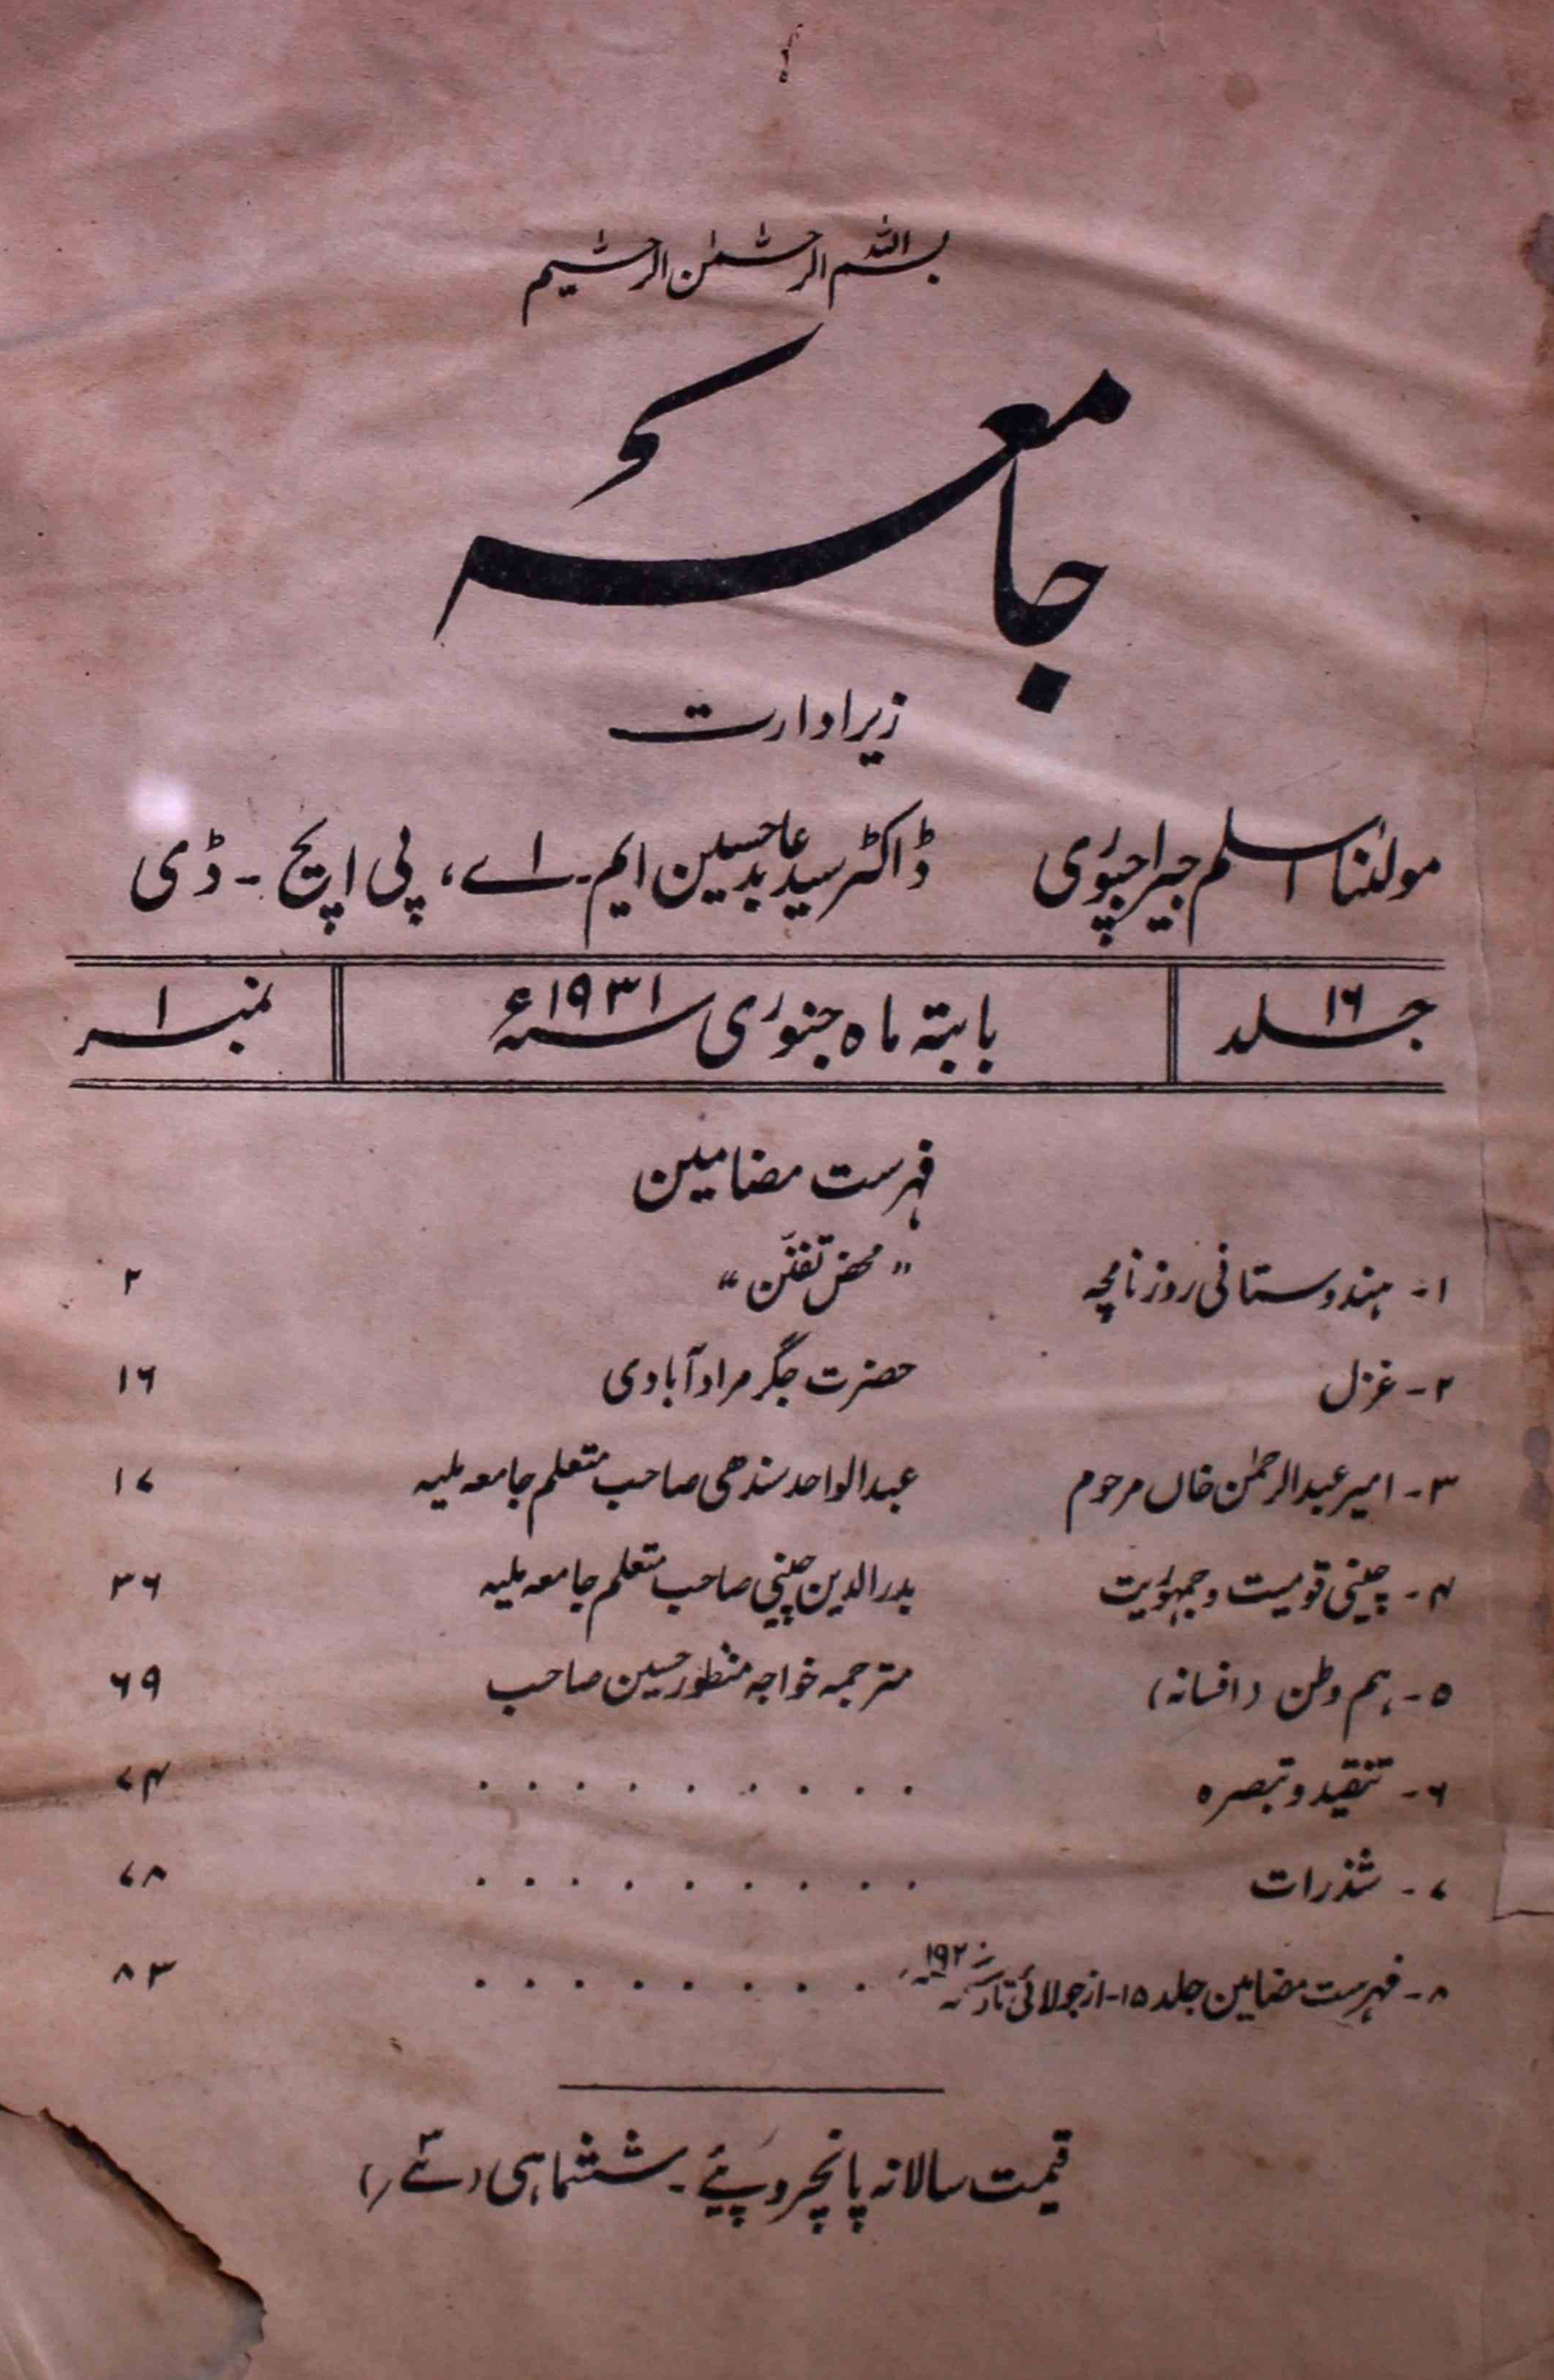 بسم اللہ الرحمٰن الرحیم
جامعہ
زیر ادارت
مولٰنا اسلم جیراجپوری ڈاکٹر سید عابد حسین ایم۔ اے، پی ایچ۔ ڈی
جلد ۱۶ بابتہ ماہ جنوری سنہ ۱۹۳۱ء نمبر ۱
فہرست مضامین
۱۔ ہندوستانی روزنامچہ "محض تفنّن" ۲
۲۔ غزل حضرت جگر مرادآبادی ۱۶
۳۔ امیر عبدالرحمٰن خاں مرحوم عبدالواحد سندھی صاحب متعلم جامعہ ملیہ ۱۷
۴۔ چینی قومیت و جمہوریت بدرالدین چینی صاحب متعلم جامعہ ملیہ ۳۶
۵۔ ہم وطن (افسانہ) مترجمہ خواجہ منظور حسین صاحب ۶۹
۶۔ تنقید و تبصرہ . . . . . . . . . ۷۴
۷۔ شذرات . . . . . . . . . ۷۸
۸۔ فہرست مضامین جلد ۱۵۔ از جولائی تا . . . . . . . . . ۸۳
قیمت سالانہ پانچروپئے۔ ششماہی